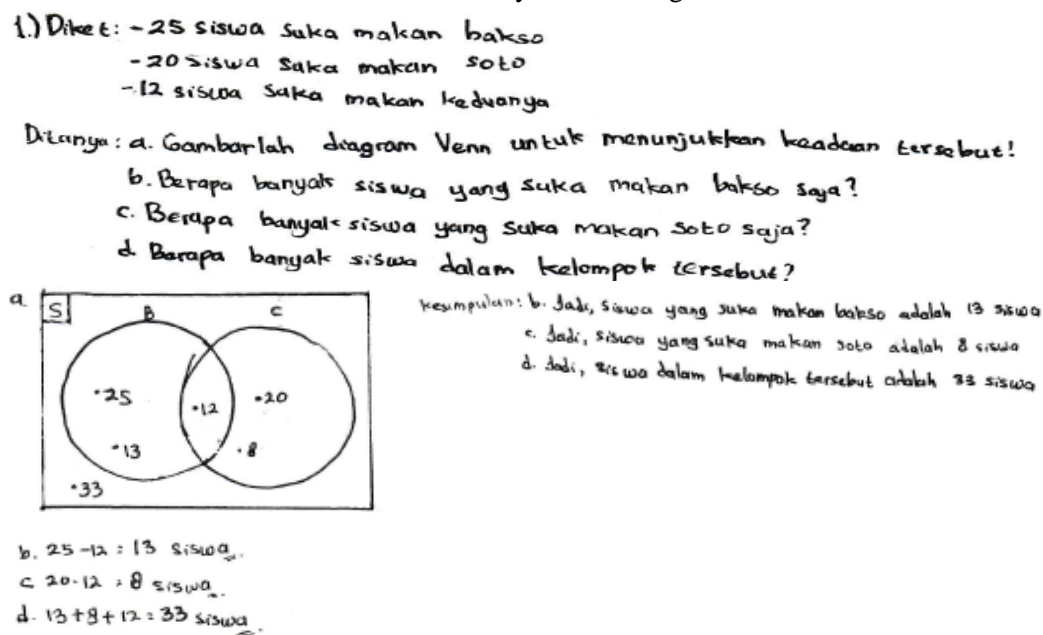 1.) Diket: - 25 siswa suka makan bakso
- 20 siswa suka makan soto
- 12 siswa suka makan keduanya
Ditanya: a. Gambarlah diagram Venn untuk menunjukkan keadaan tersebut!
b. Berapa banyak siswa yang suka makan bakso saja?
c. Berapa banyak siswa yang suka makan soto saja?
d. Barapa banyak siswa dalam kelompok tersebut?
a
S
B
C
•25
•12
•20
•13
•8
•33
Kesimpulan: b. Jadi, siswa yang suka makan bakso adalah 13 siswa
c. Jadi, siswa yang suka makan soto adalah 8 siswa
d. Jadi, siswa dalam kelompok tersebut adalah 33 siswa
b. 25 - 12 = 13 siswa.
c 20 - 12 = 8 siswa.
d. 13 + 8 + 12 = 33 siswa.